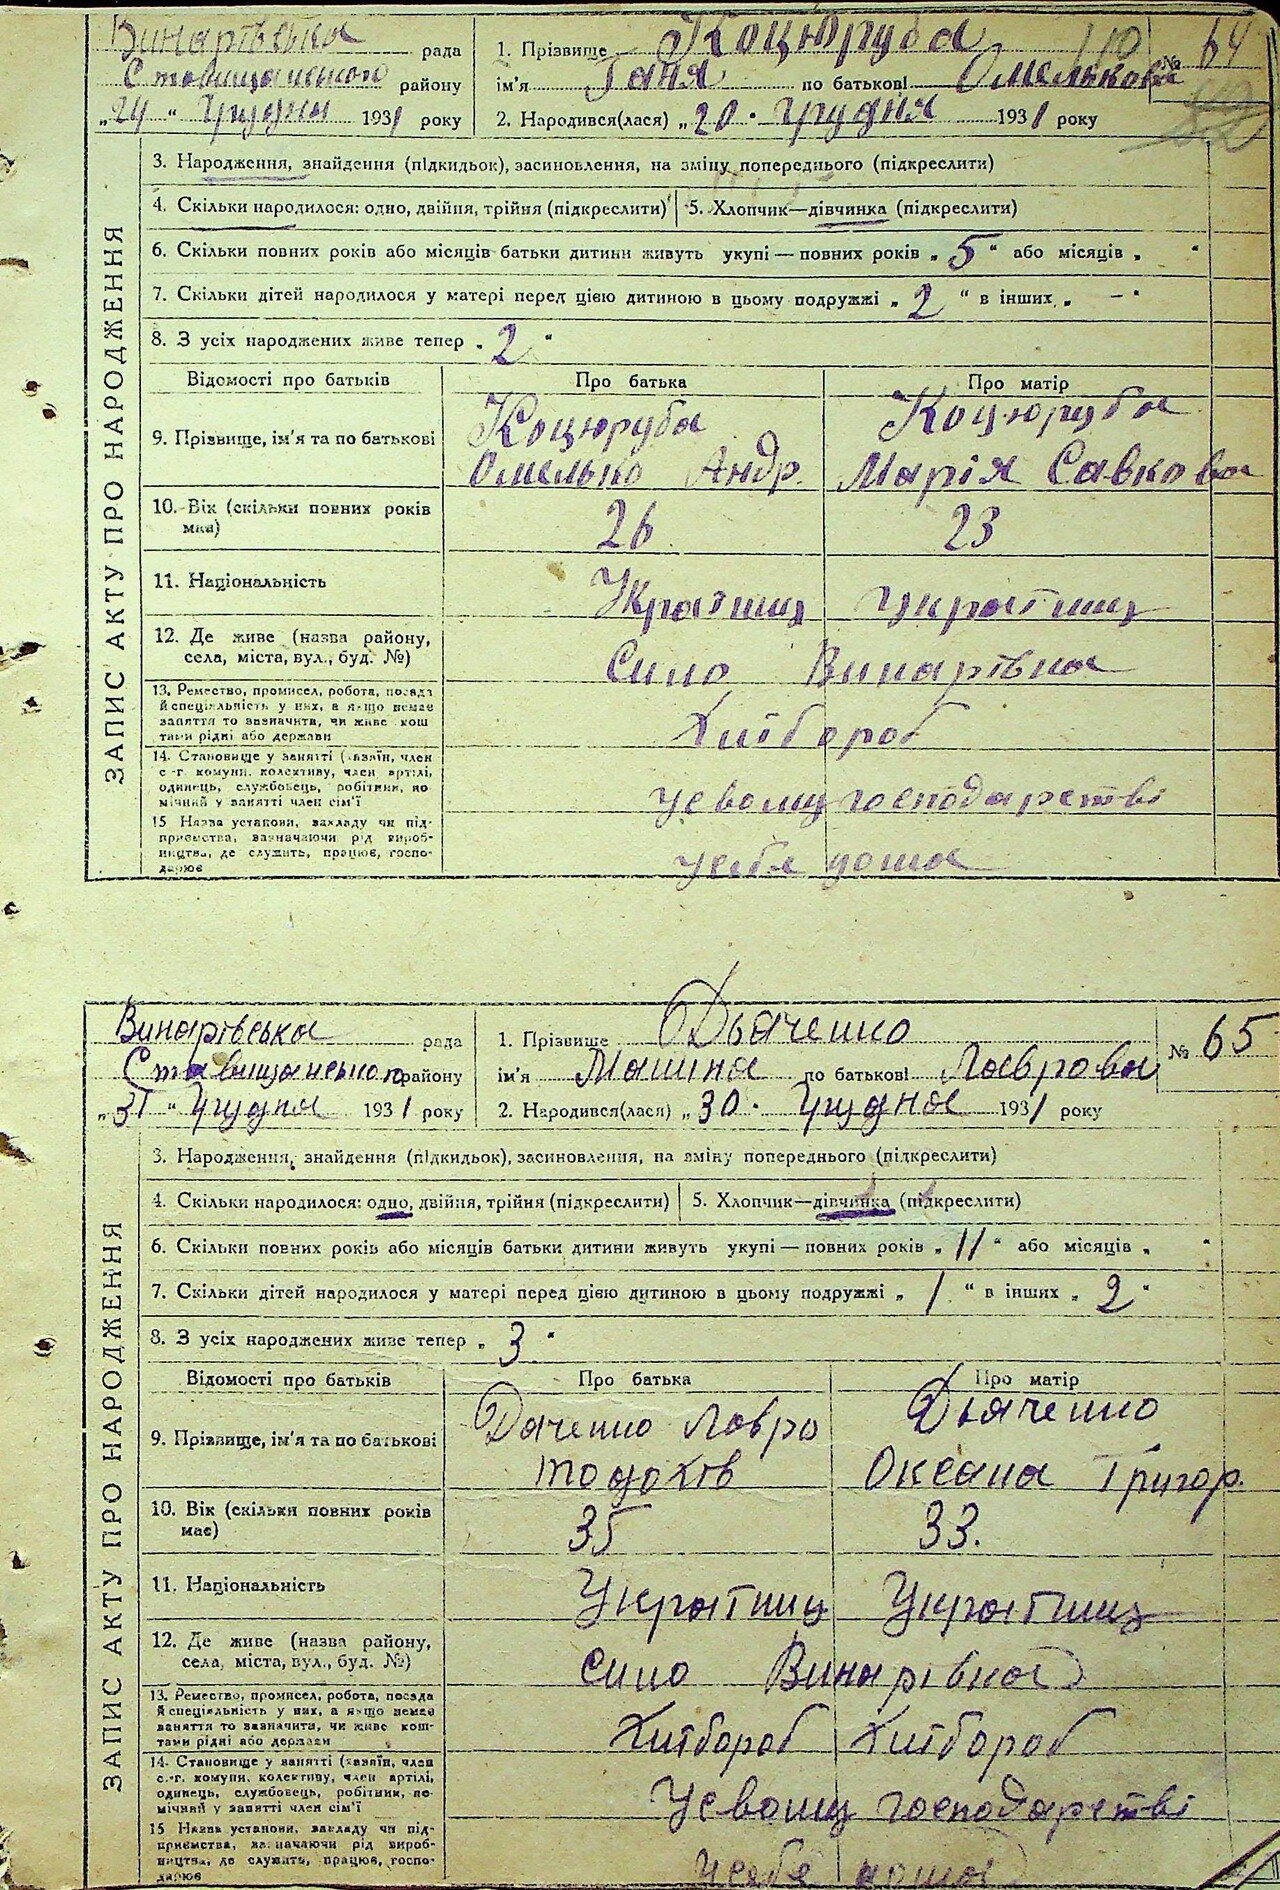 Винарівська рада
Ставищанського району
„24 “ Грудня 1931 року
1. Прізвище Коцюруба
ім'я Ганя по батькові Омелькова
2. Народився(лася) „20. Грудня 1931 року
110 № 64
ЗАПИС АКТУ ПРО НАРОДЖЕННЯ
3. Народження, знайдення (підкидьок), засиновлення, на зміну попереднього (підкреслити)
4. Скільки народилося: одно, двійня, трійня (підкреслити) 5. Хлопчик—дівчинка (підкреслити)
6. Скільки повних років або місяців батьки дитини живуть укупі — повних років „ 5 “ або місяців „ “
7. Скільки дітей народилося у матері перед цією дитиною в цьому подружжі „ 2 “ в інших „ – “
8. З усіх народжених живе тепер „ 2 “
Відомості про батьків Про батька Про матір
9. Прізвище, ім'я та по батькові Коцюруба Коцюруба
Омелько Андр. Марія Савкова
10. Вік (скільки повних років має) 26 23
11. Національність
12. Де живе (назва району, Село Винарівка
села, міста, вул., буд. №)
13. Ремество, промисел, робота, посада
й спеціяльність у них, а якщо немає
заняття то зазначити, чи живе кош
тами рідні або держави
Хлібороб
14. Становище у занятті (хазяїн, член
с.-г. комуни, колективу, член артілі,
одинець, службовець, робітник, по
мічний у занятті член сім'ї
У своему господарстві
15 Назва установи, закладу чи під-
приємства, зазначаючи рід вироб-
ництва, де служить, працює, госпо-
дарює
у себя дома
Винарівська рада
Ставищанського району
„31 “ Грудня 1931 року
1. Прізвище Дьяченко
ім'я по батькові Лаврова
2. Народився(лася) „30. Грудня 1931 року
№ 65
ЗАПИС АКТУ ПРО НАРОДЖЕННЯ
3. Народження, знайдення (підкидьок), засиновлення, на зміну попереднього (підкреслити)
4. Скільки народилося: одно, двійня, трійня (підкреслити) 5. Хлопчик—дівчинка (підкреслити)
6. Скільки повних років або місяців батьки дитини живуть укупі — повних років „ 11 “ або місяців „ “
7. Скільки дітей народилося у матері перед цією дитиною в цьому подружжі „ 1 “ в інших „ 2 “
8. З усіх народжених живе тепер „ 3 “
Відомості про батьків Про батька Про матір
9. Прізвище, ім'я та по батькові Дяченко Лавро Дьяченко
Оксана Григор.
10. Вік (скільки повних років має) 35 33.
11. Національність
12. Де живе (назва району, село Винарівка
села, міста, вул., буд. №)
13. Ремество, промисел, робота, посада
й спеціяльність у них, а якщо немає
заняття то зазначити, чи живе кош-
тами рідні або держави
Хлібороб Хлібороб
14. Становище у занятті (хазяїн, член
с.-г. комуни, колективу, член артілі,
одинець, службовець, робітник, по-
мічний у занятті член сім'ї
У своему господарстві
15 Назва установи, закладу чи під-
приємства, зазначаючи рід вироб-
ництва, де служить, працює, госпо-
дарює
У себя дома